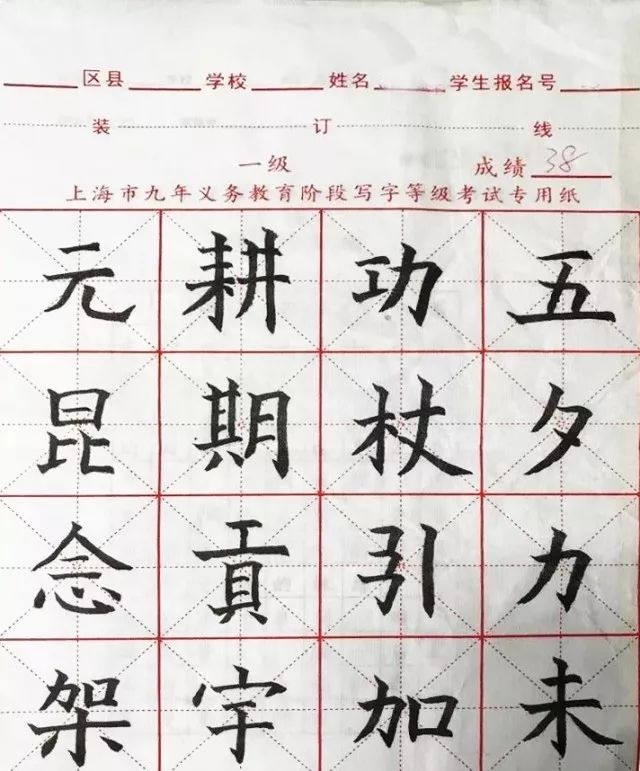 区县 学校 姓名 学生报名号
装 订 线
一级 成绩 38
上海市九年义务教育阶段写字等级考试专用纸
五夕力未
功杖引加
耕期貢宇
元昆念架